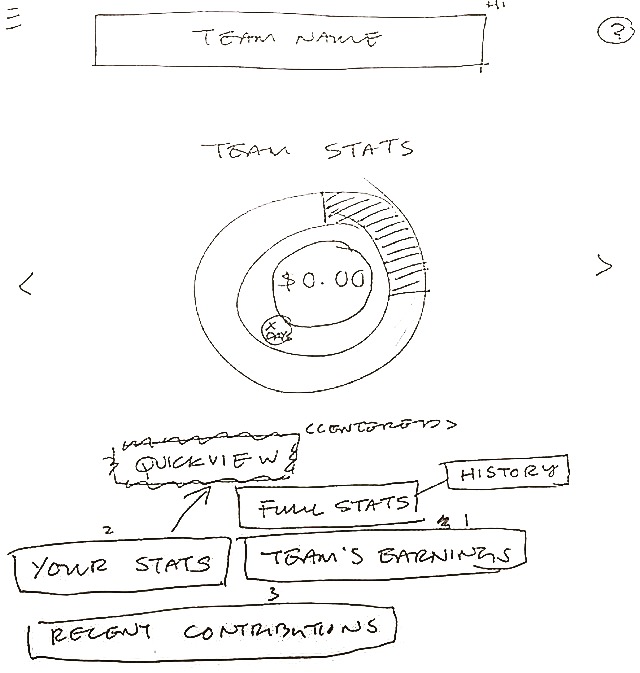 H1
TEAM NAME
?
TEAM STATS
<
>
$0.00
X
DAYS
<CENTERED>
QUICKVIEW
HISTORY
FULL STATS
2
1
YOUR STATS
TEAM'S EARNINGS
3
RECENT CONTRIBUTIONS